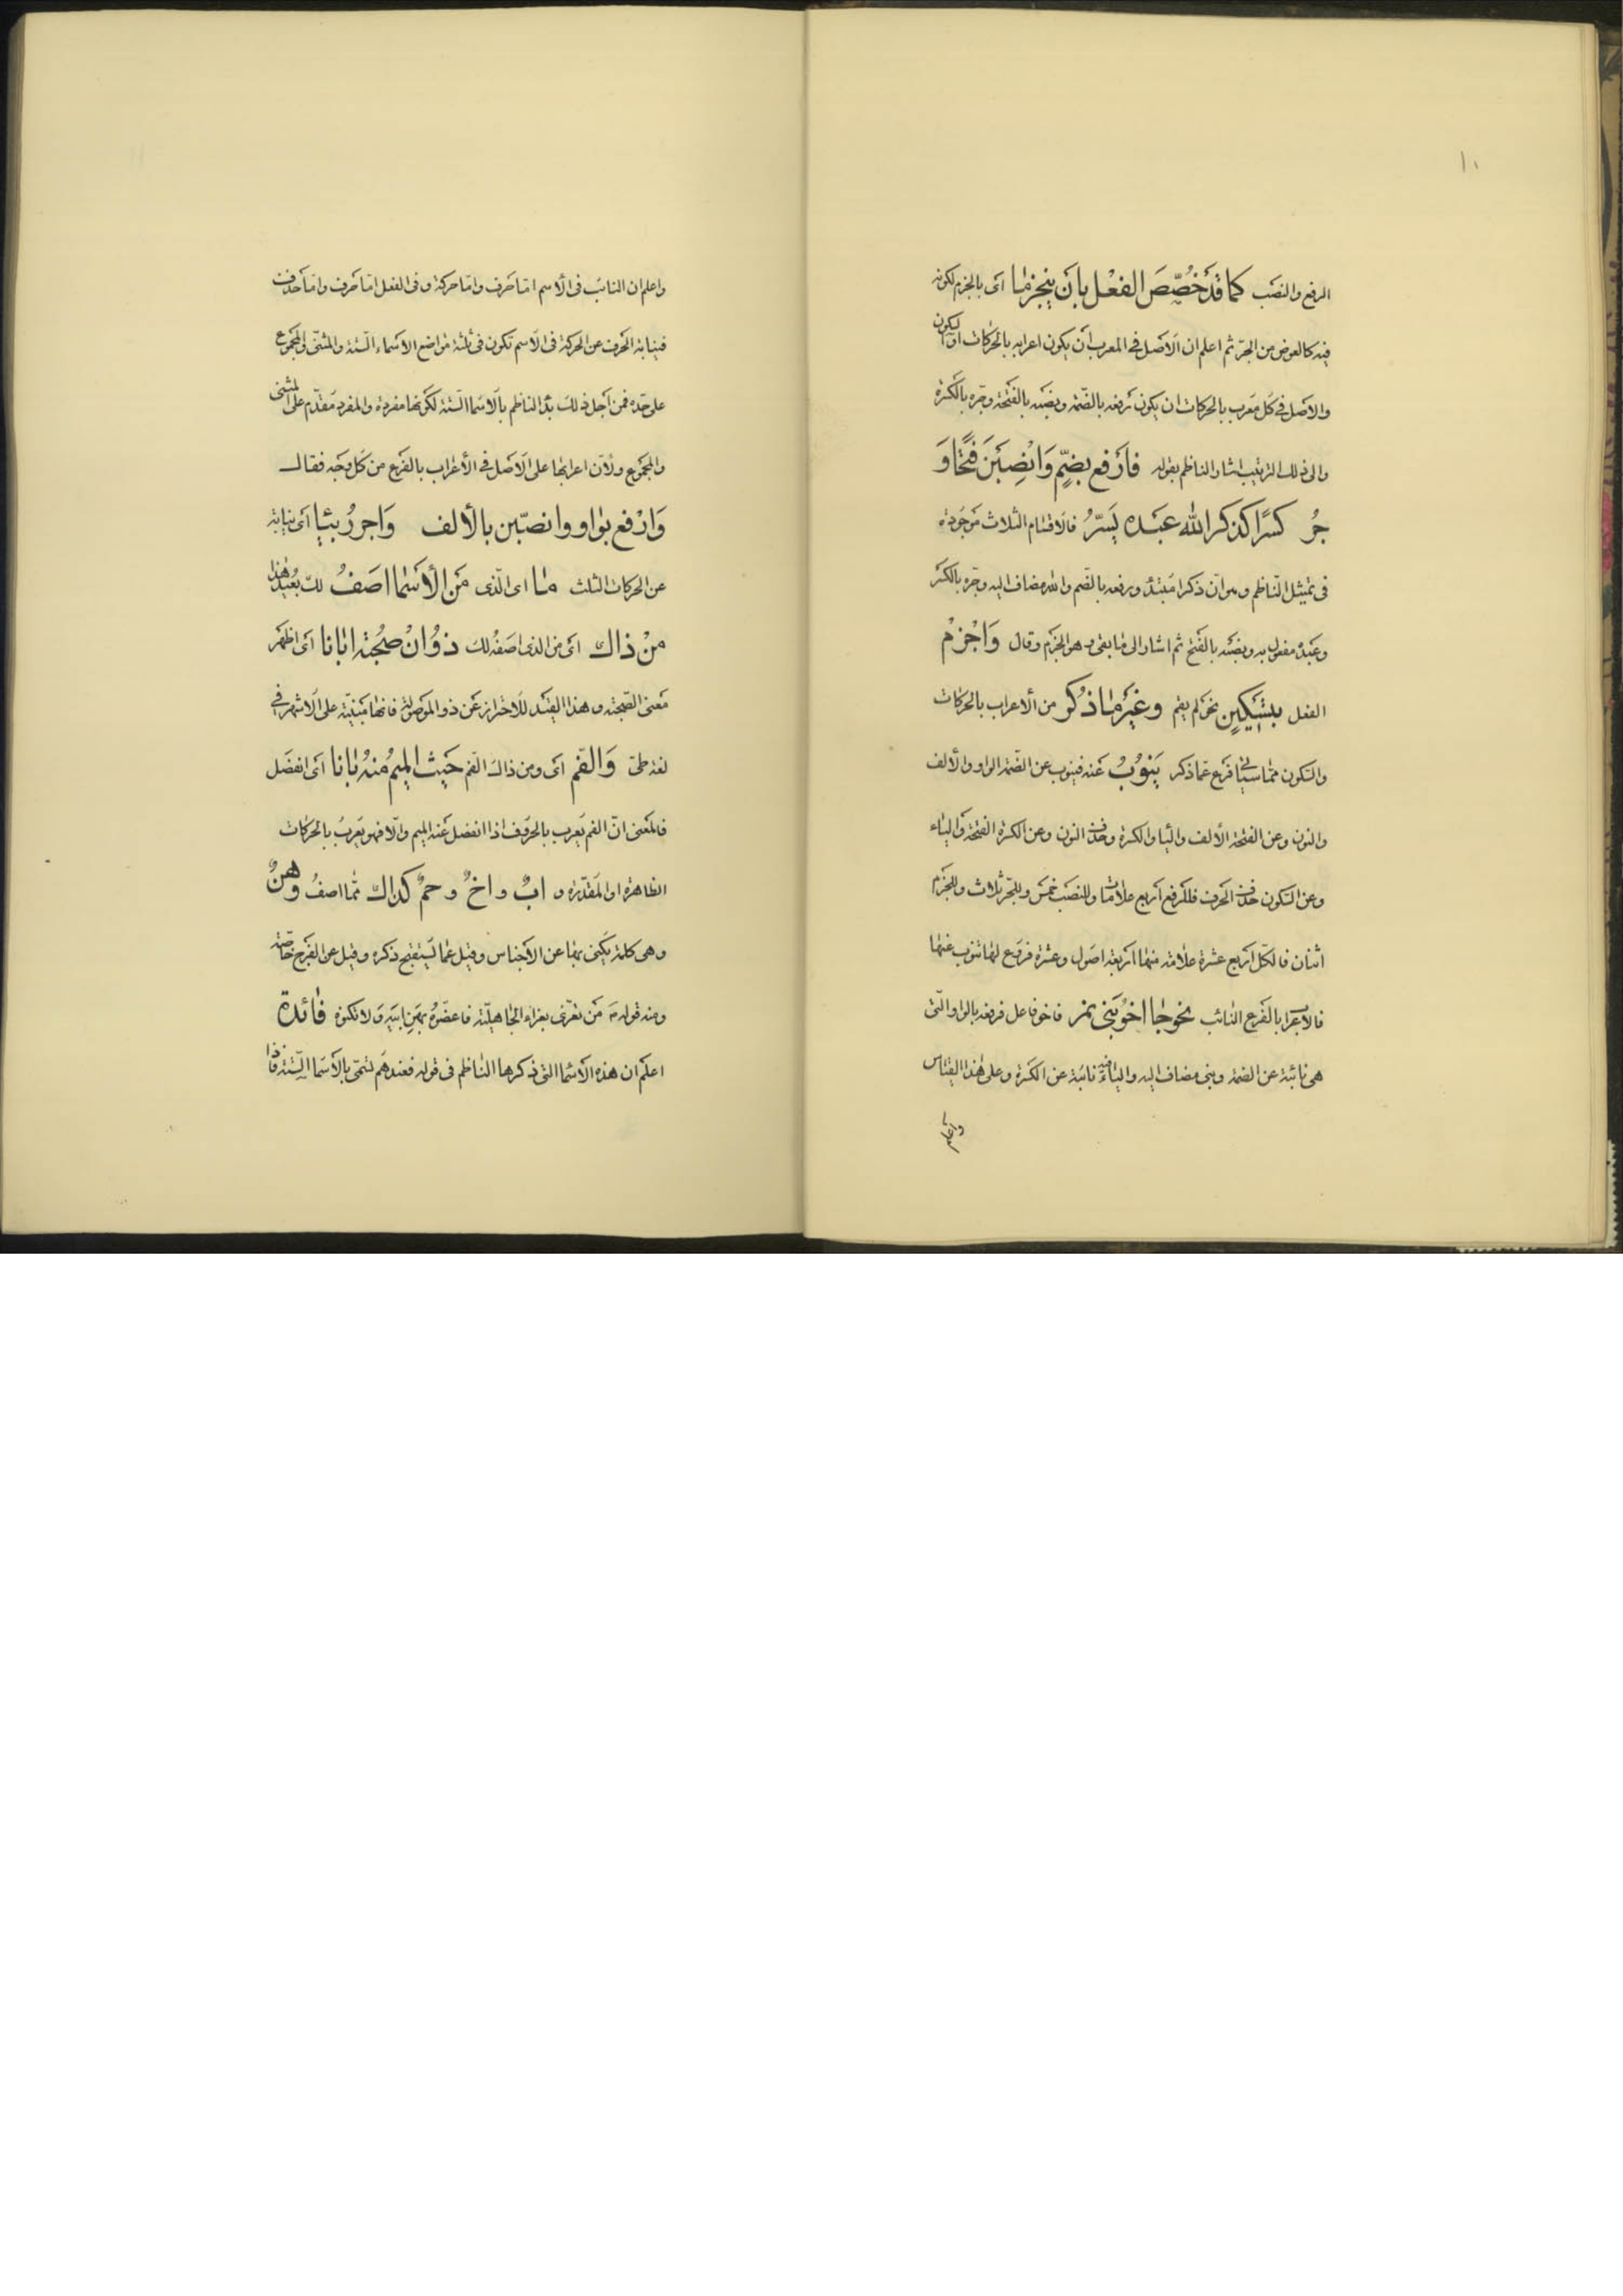 ١٠
الرفع والنصب كما قد خصص الفعل بأن ينجزما اى بالجزم لكونه
فيه كالعوض من الجر ثم اعلم ان الاصل فى المعرب ان يكون اعرابه بالحركات او السكون
والاصل فى كل معرب بالحركات ان يكون رفعه بالضمة ونصبه بالفتحة وجره بالكسرة
والى ذلك الترتيب اشار الناظم بقوله فارفع بضم وانصبن فتحا و
جر كسرا كذكر الله عبده يسر فالاقسام الثلاث موجودة
فى تمثيل الناظم وهو ان ذكر امبتدأ ورفعه بالضم والله مضاف اليه وجره بالكسر
وعبده مفعول به ونصبه بالفتح ثم اشار الى ما بقى وهو الجزم وقال واجزم
الفعل بتسكين نحو لم يقم وغير ما ذكر من الاعراب بالحركات
والسكون مما سيأتى فرع عما ذكر ينوب عنه فينوب عن الضمة الواو والالف
والنون وعن الفتحة الالف والياء والكسرة وحذف النون وعن الكسرة الفتحة والياء
وعن السكون حذف الحرف فللرفع اربع علامات وللنصب خمس وللجر ثلاث وللجزم
اثنان فالكل اربع عشرة علامة منها اربعة اصول وعشرة فروع لها تنوب عنها
فالاعراب بالفرع النائب نحو جا اخو بنى نمر فاخو فاعل فرفعه بالواو التى
هى نائبة عن الضمة وبنى مضاف اليه والياء فيه نائبة عن الكسرة وعلى هذا القياس
واعلم
واعلم ان النائب فى الاسم اما حرف واما حركة وفى الفعل اما حرف واما حذف
فنيابة الحرف عن الحركة فى الاسم تكون فى ثلثة مواضع الاسماء الستة والمثنى والمجموع
على حده فمن اجل ذلك بدأ الناظم بالاسما الستة لكونها مفردة والمفرد مقدم على المثنى
والمجموع ولان اعرابها على الاصل فى الاعراب بالفرع من كل وجه فقال
وارفع بواو وانصبن بالالف واجرر بيا اى نيابة
عن الحركات الثلث ما اى الذى من الاسما اصف لك بعد هذا
من ذاك اى من الذى اصفه لك ذو ان صحبة ابانا اى اظهر
معنى الصحبة وهذا القيد للاحتراز عن ذو الموصولة فانها مبنية على الاشهر فى
لغة طى والفم اى ومن ذاك الفم حيث الميم منه بانا اى انفصل
فالمعنى ان الفم يعرب بالحروف اذا انفصل عنه الميم والا فهو يعرب بالحركات
الظاهرة او المقدرة و اب و اخ و حم كذاك مما اصف وهن
وهى كلمة يكنى بها عن الاجناس وقيل عما يستقبح ذكره وقيل عن الفرج خاصة
ومنه قوله من تعزى بعزاء الجاهلية فاعضوه بهن ابيه ولا تكنوه فائدة
اعلم ان هذه الاسما التى ذكرها الناظم فى قوله فعندهم تسمى بالاسما الستة فاذا